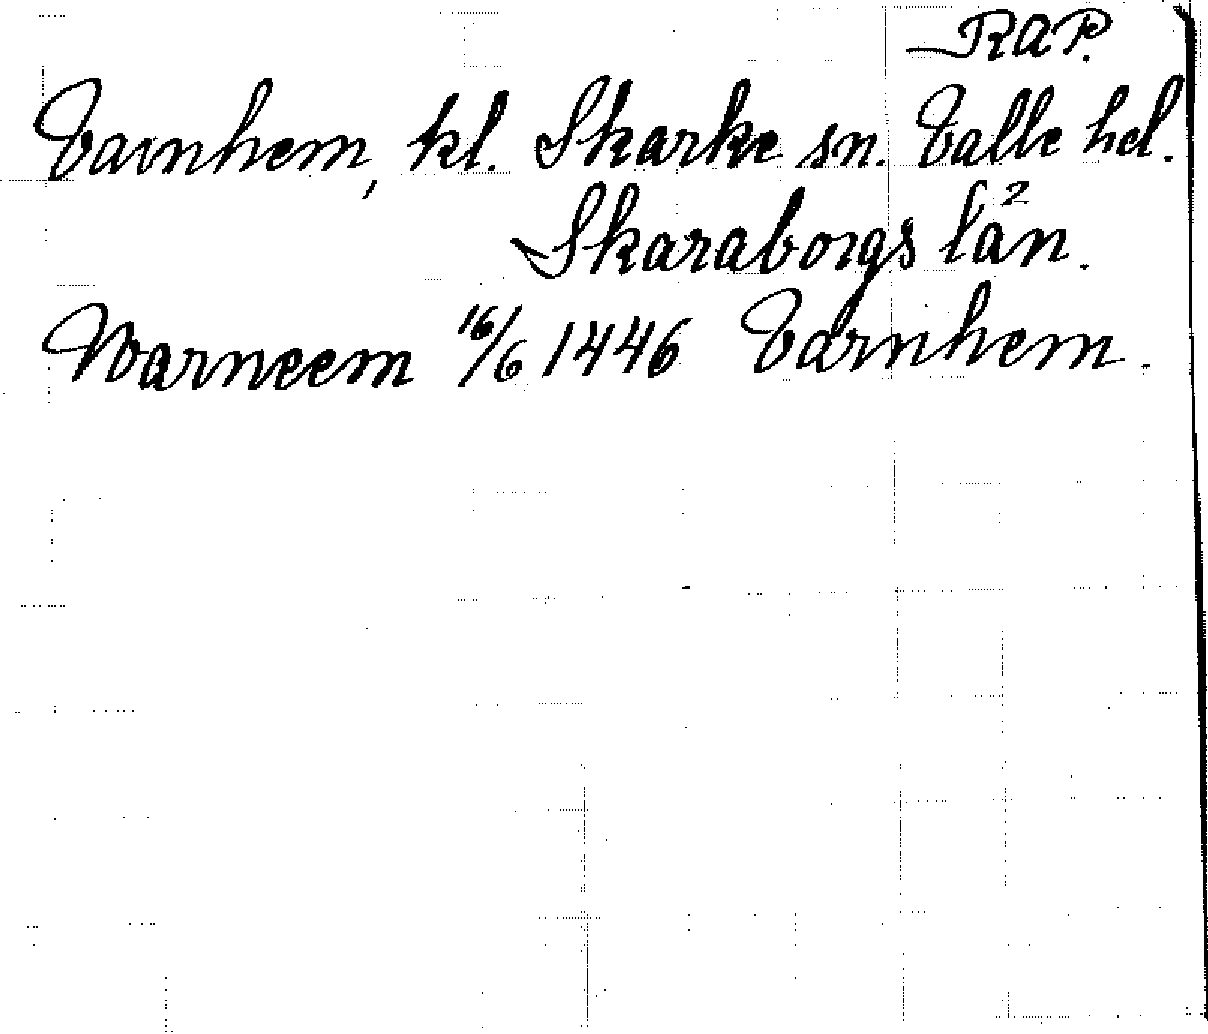 RAP.
Varnhem, kl. Skarke sn. Valle hd.
Skaraborgs län.
Warneem 16/6 1446 Varnhem.